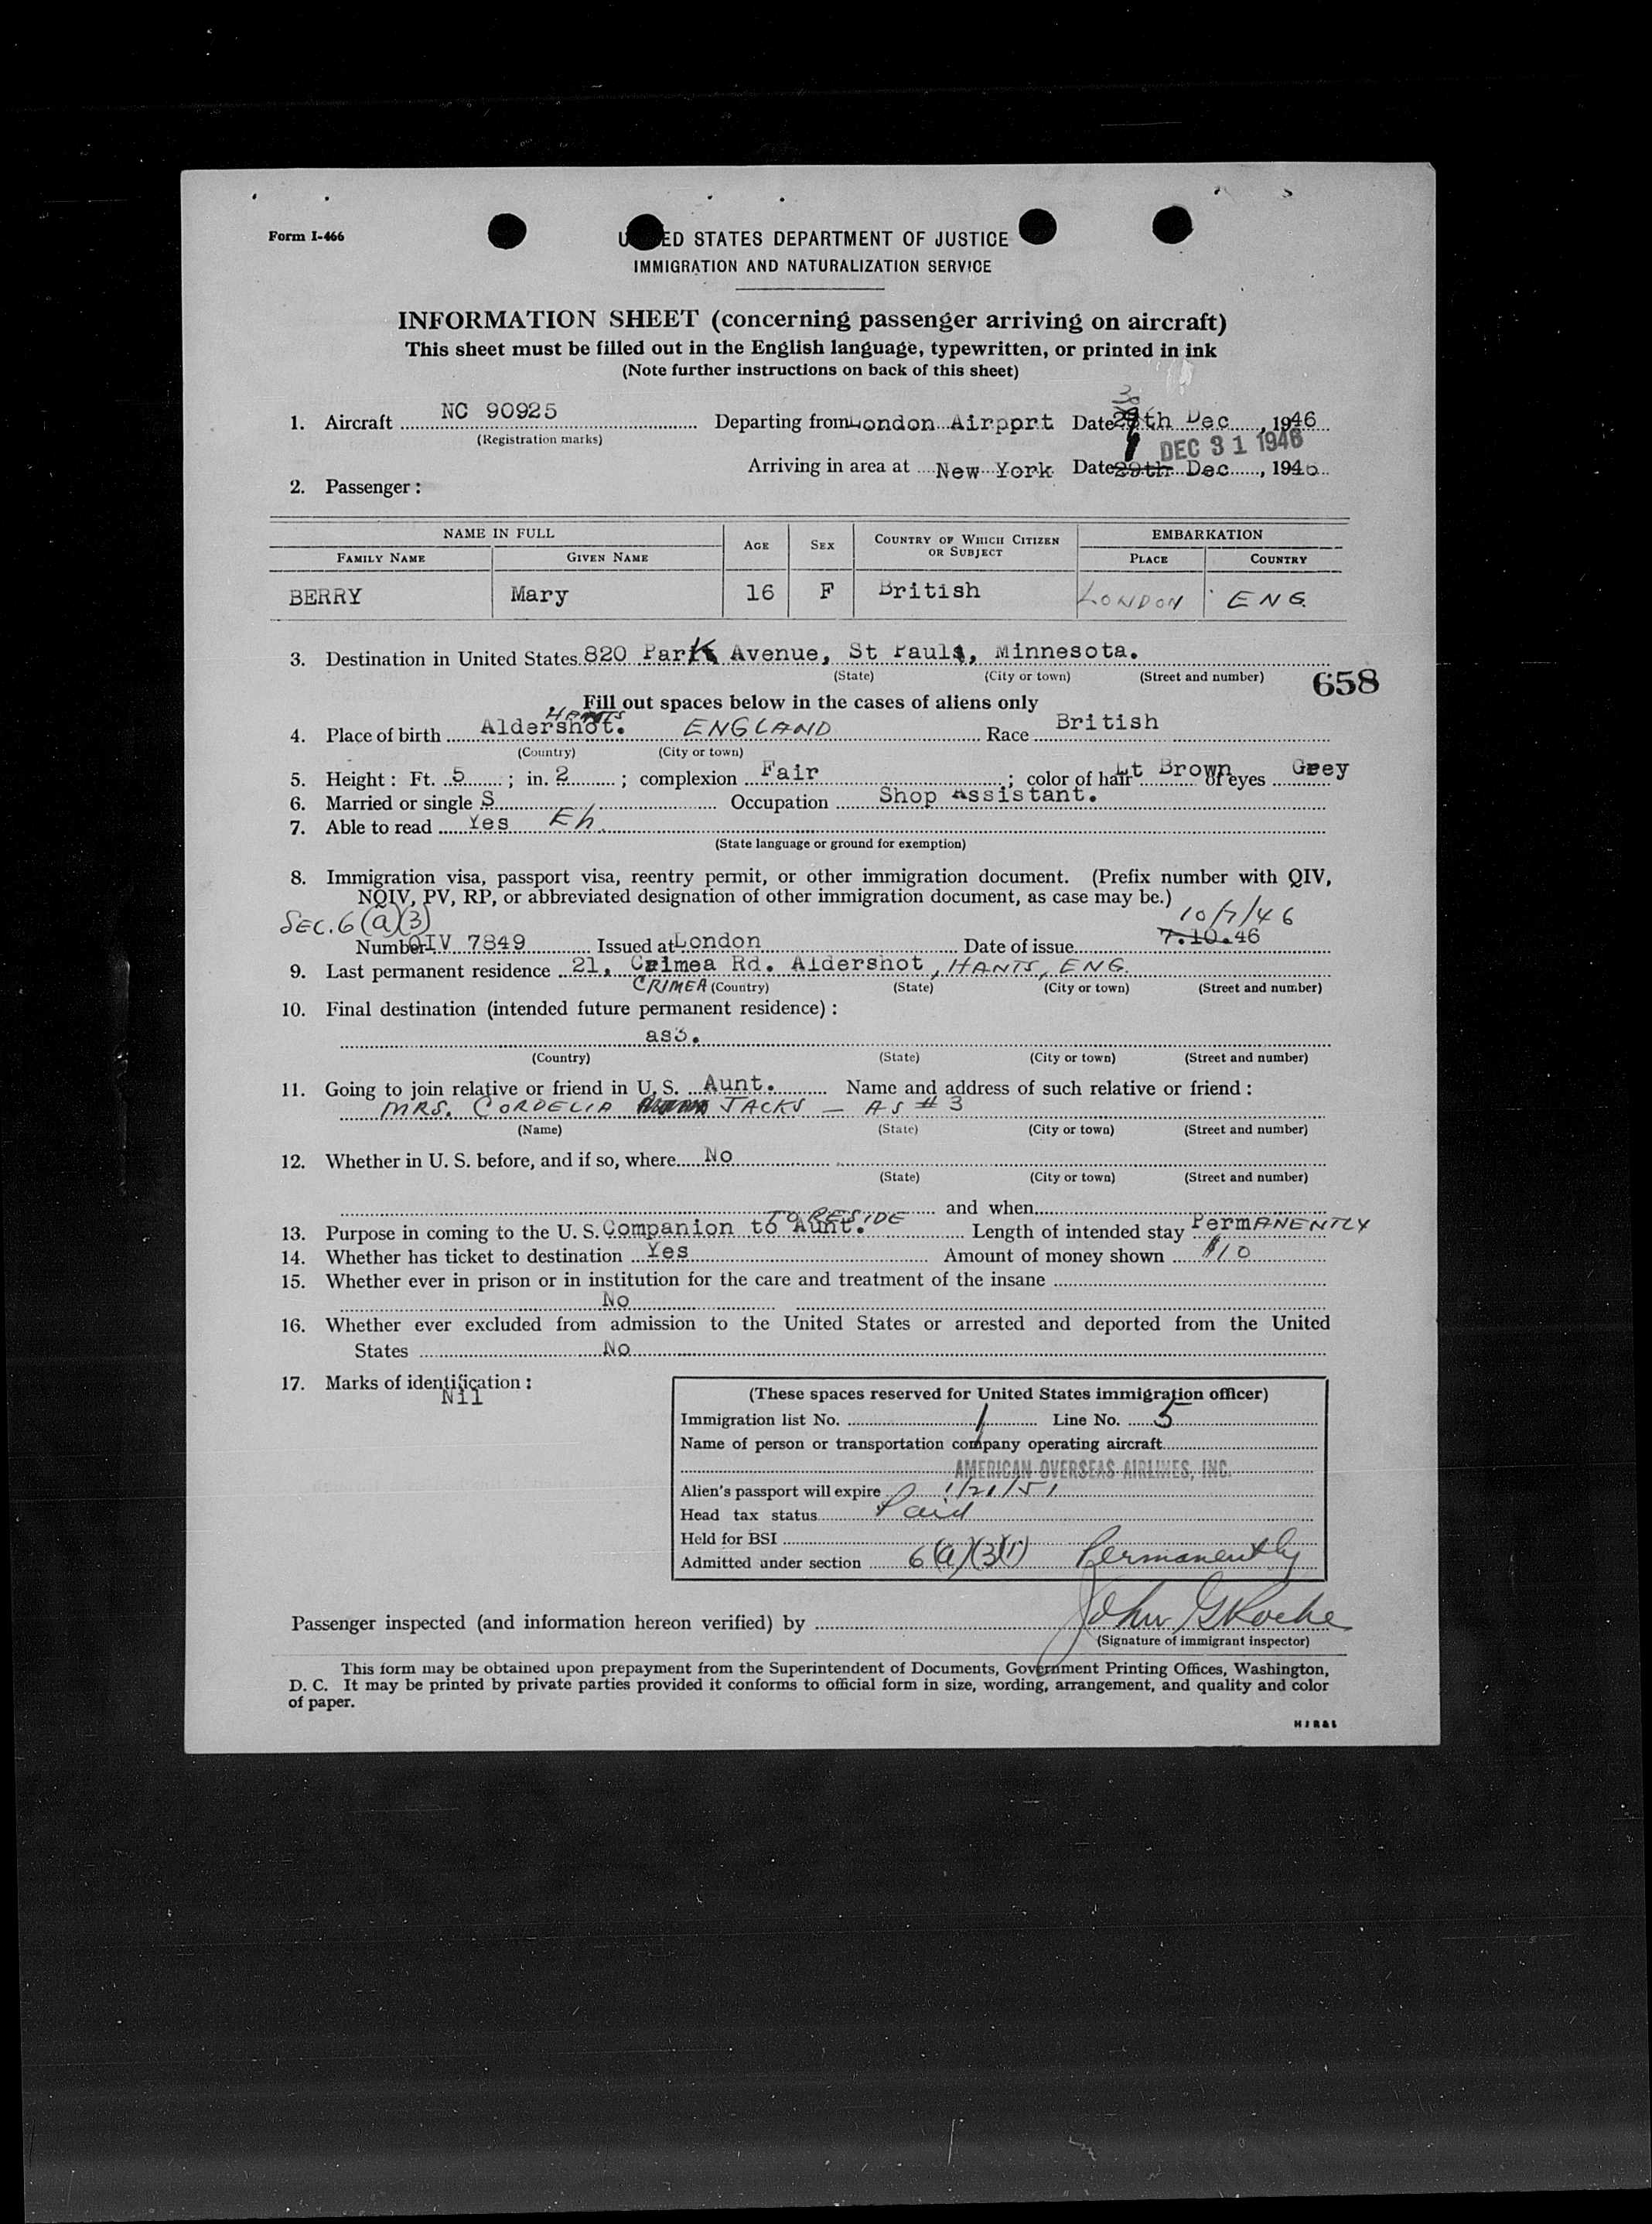 Form I-466
UNITED STATES DEPARTMENT OF JUSTICE
IMMIGRATION AND NATURALIZATION SERVICE
INFORMATION SHEET (concerning passenger arriving on aircraft)
This sheet must be filled out in the English language, typewritten, or printed in ink
(Note further instructions on back of this sheet)
30
1. Aircraft NC 90925 Departing from London Airpprt Date 29th Dec, 1946
(Registration marks)
DEC 31 1946
Arriving in area at New York Date 29th Dec, 1946
2. Passenger:
NAME IN FULL AGE SEX COUNTRY OF WHICH CITIZEN OR SUBJECT EMBARKATION
FAMILY NAME GIVEN NAME PLACE COUNTRY
BERRY Mary 16 F British LONDON ENG.
3. Destination in United States 820 Park Avenue, St Paul, Minnesota.
(State) (City or town) (Street and number)
658
Fill out spaces below in the cases of aliens only
HANTS
4. Place of birth Aldershot. ENGLAND Race British
(Country) (City or town)
5. Height: Ft. 5; in. 2; complexion Fair; color of hair Lt Brown of eyes Grey
6. Married or single S Occupation Shop Assistant.
7. Able to read Yes Eh
(State language or ground for exemption)
8. Immigration visa, passport visa, reentry permit, or other immigration document. (Prefix number with QIV,
NQIV, PV, RP, or abbreviated designation of other immigration document, as case may be.)
SEC. 6(a)(3) 10/7/46
Number QIV 7849 Issued at London Date of issue 7.10.46
9. Last permanent residence 21, Crimea Rd. Aldershot, HANTS, ENG.
CRIMEA (Country) (State) (City or town) (Street and number)
10. Final destination (intended future permanent residence):
as3.
(Country) (State) (City or town) (Street and number)
11. Going to join relative or friend in U. S. Aunt. Name and address of such relative or friend:
MRS. CORDELIA JACKS — AS # 3
(Name) (State) (City or town) (Street and number)
12. Whether in U. S. before, and if so, where No
(State) (City or town) (Street and number)
and when
TO RESIDE
13. Purpose in coming to the U. S. Companion to Aunt. Length of intended stay PermANENTLY
14. Whether has ticket to destination Yes Amount of money shown $10
15. Whether ever in prison or in institution for the care and treatment of the insane
No
16. Whether ever excluded from admission to the United States or arrested and deported from the United
States No
17. Marks of identification:
Nil
(These spaces reserved for United States immigration officer)
Immigration list No. 1 Line No. 5
Name of person or transportation company operating aircraft
AMERICAN OVERSEAS AIRLINES, INC.
Alien's passport will expire 1/21/51
Head tax status Paid
Held for BSI
Admitted under section 6(a)(3)(1) Permanently
Passenger inspected (and information hereon verified) by John G Roche
(Signature of immigrant inspector)
This form may be obtained upon prepayment from the Superintendent of Documents, Government Printing Offices, Washington,
D. C. It may be printed by private parties provided it conforms to official form in size, wording, arrangement, and quality and color
of paper.